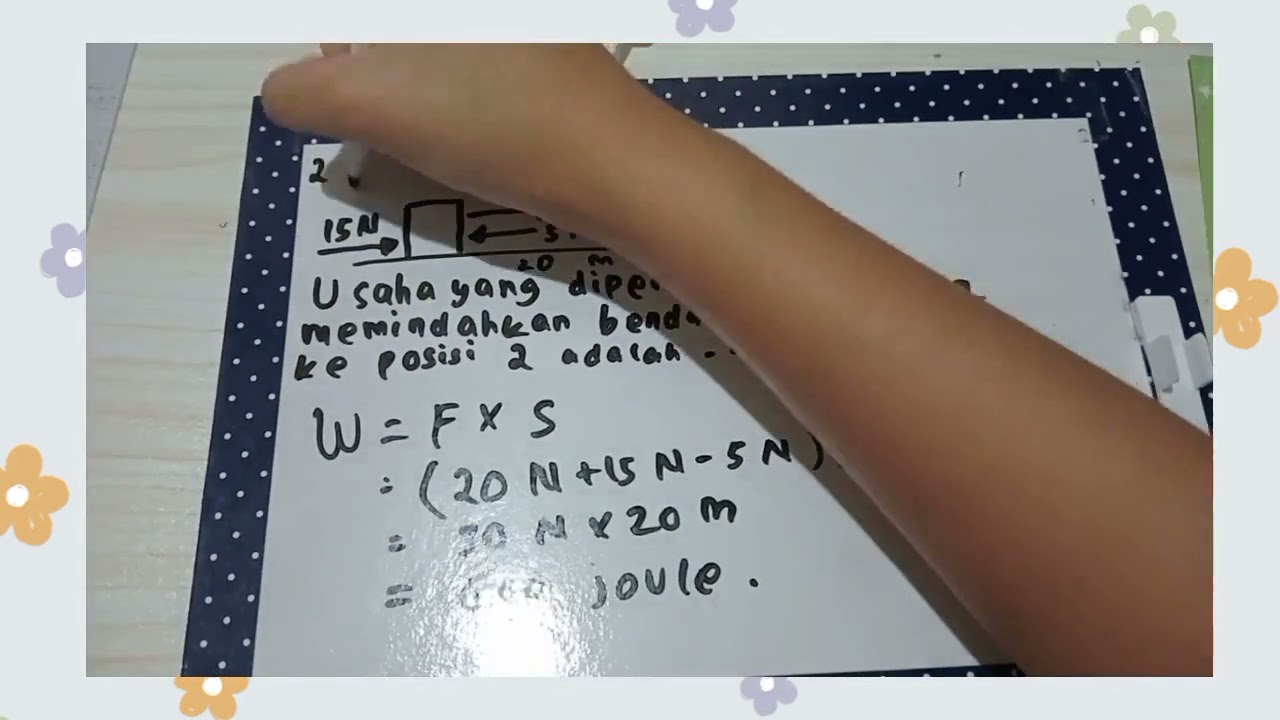 2
15N
20 m
Usaha yang
memindahkan
ke posisi 2 adalah ..
W = F x S
= (20 N + 15 N - 5 N)
= N x 20 m
= joule.